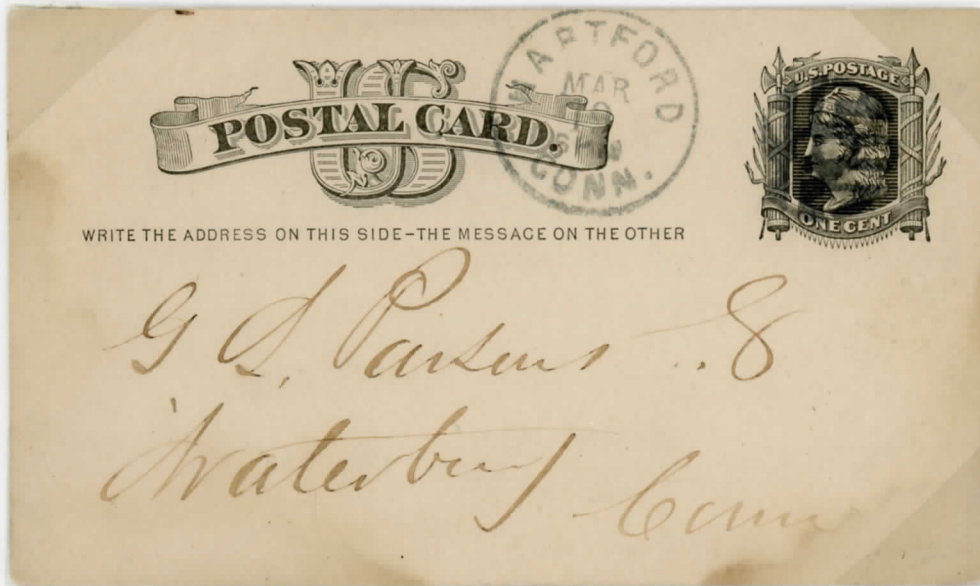 US
POSTAL CARD.
HARTFORD
MAR
CONN.
U.S. POSTAGE
ONE CENT
WRITE THE ADDRESS ON THIS SIDE–THE MESSAGE ON THE OTHER
G S. Parsons
Waterbury
Conn